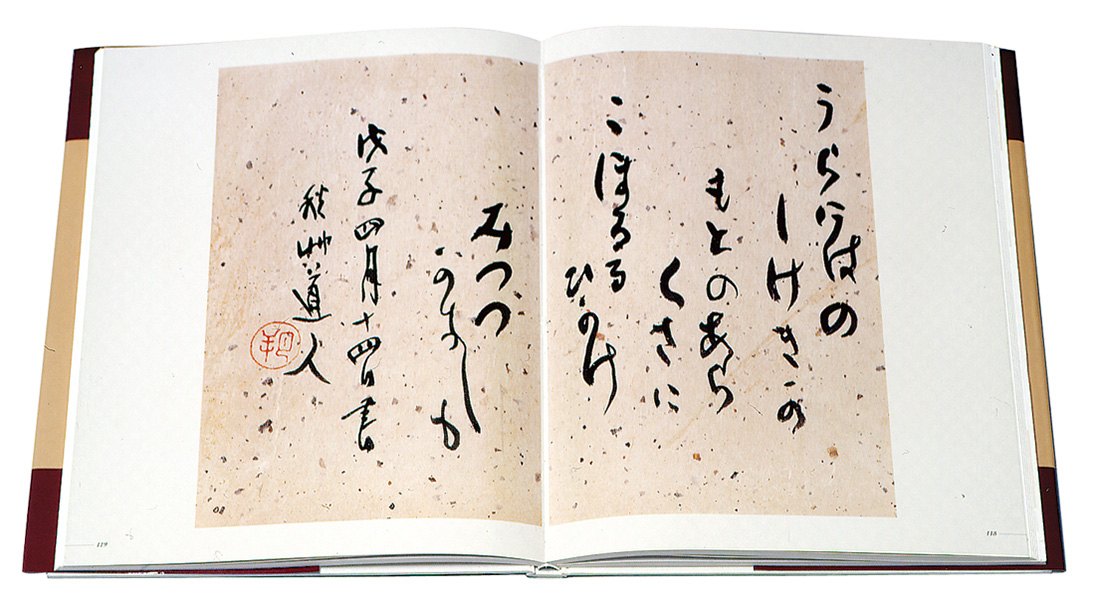 うらにはの
しけきか
もとのあら
くさに
こほるる
ひかけ
みつつ
かなしも
戊子四月十四日書
秋艸道人
119
118